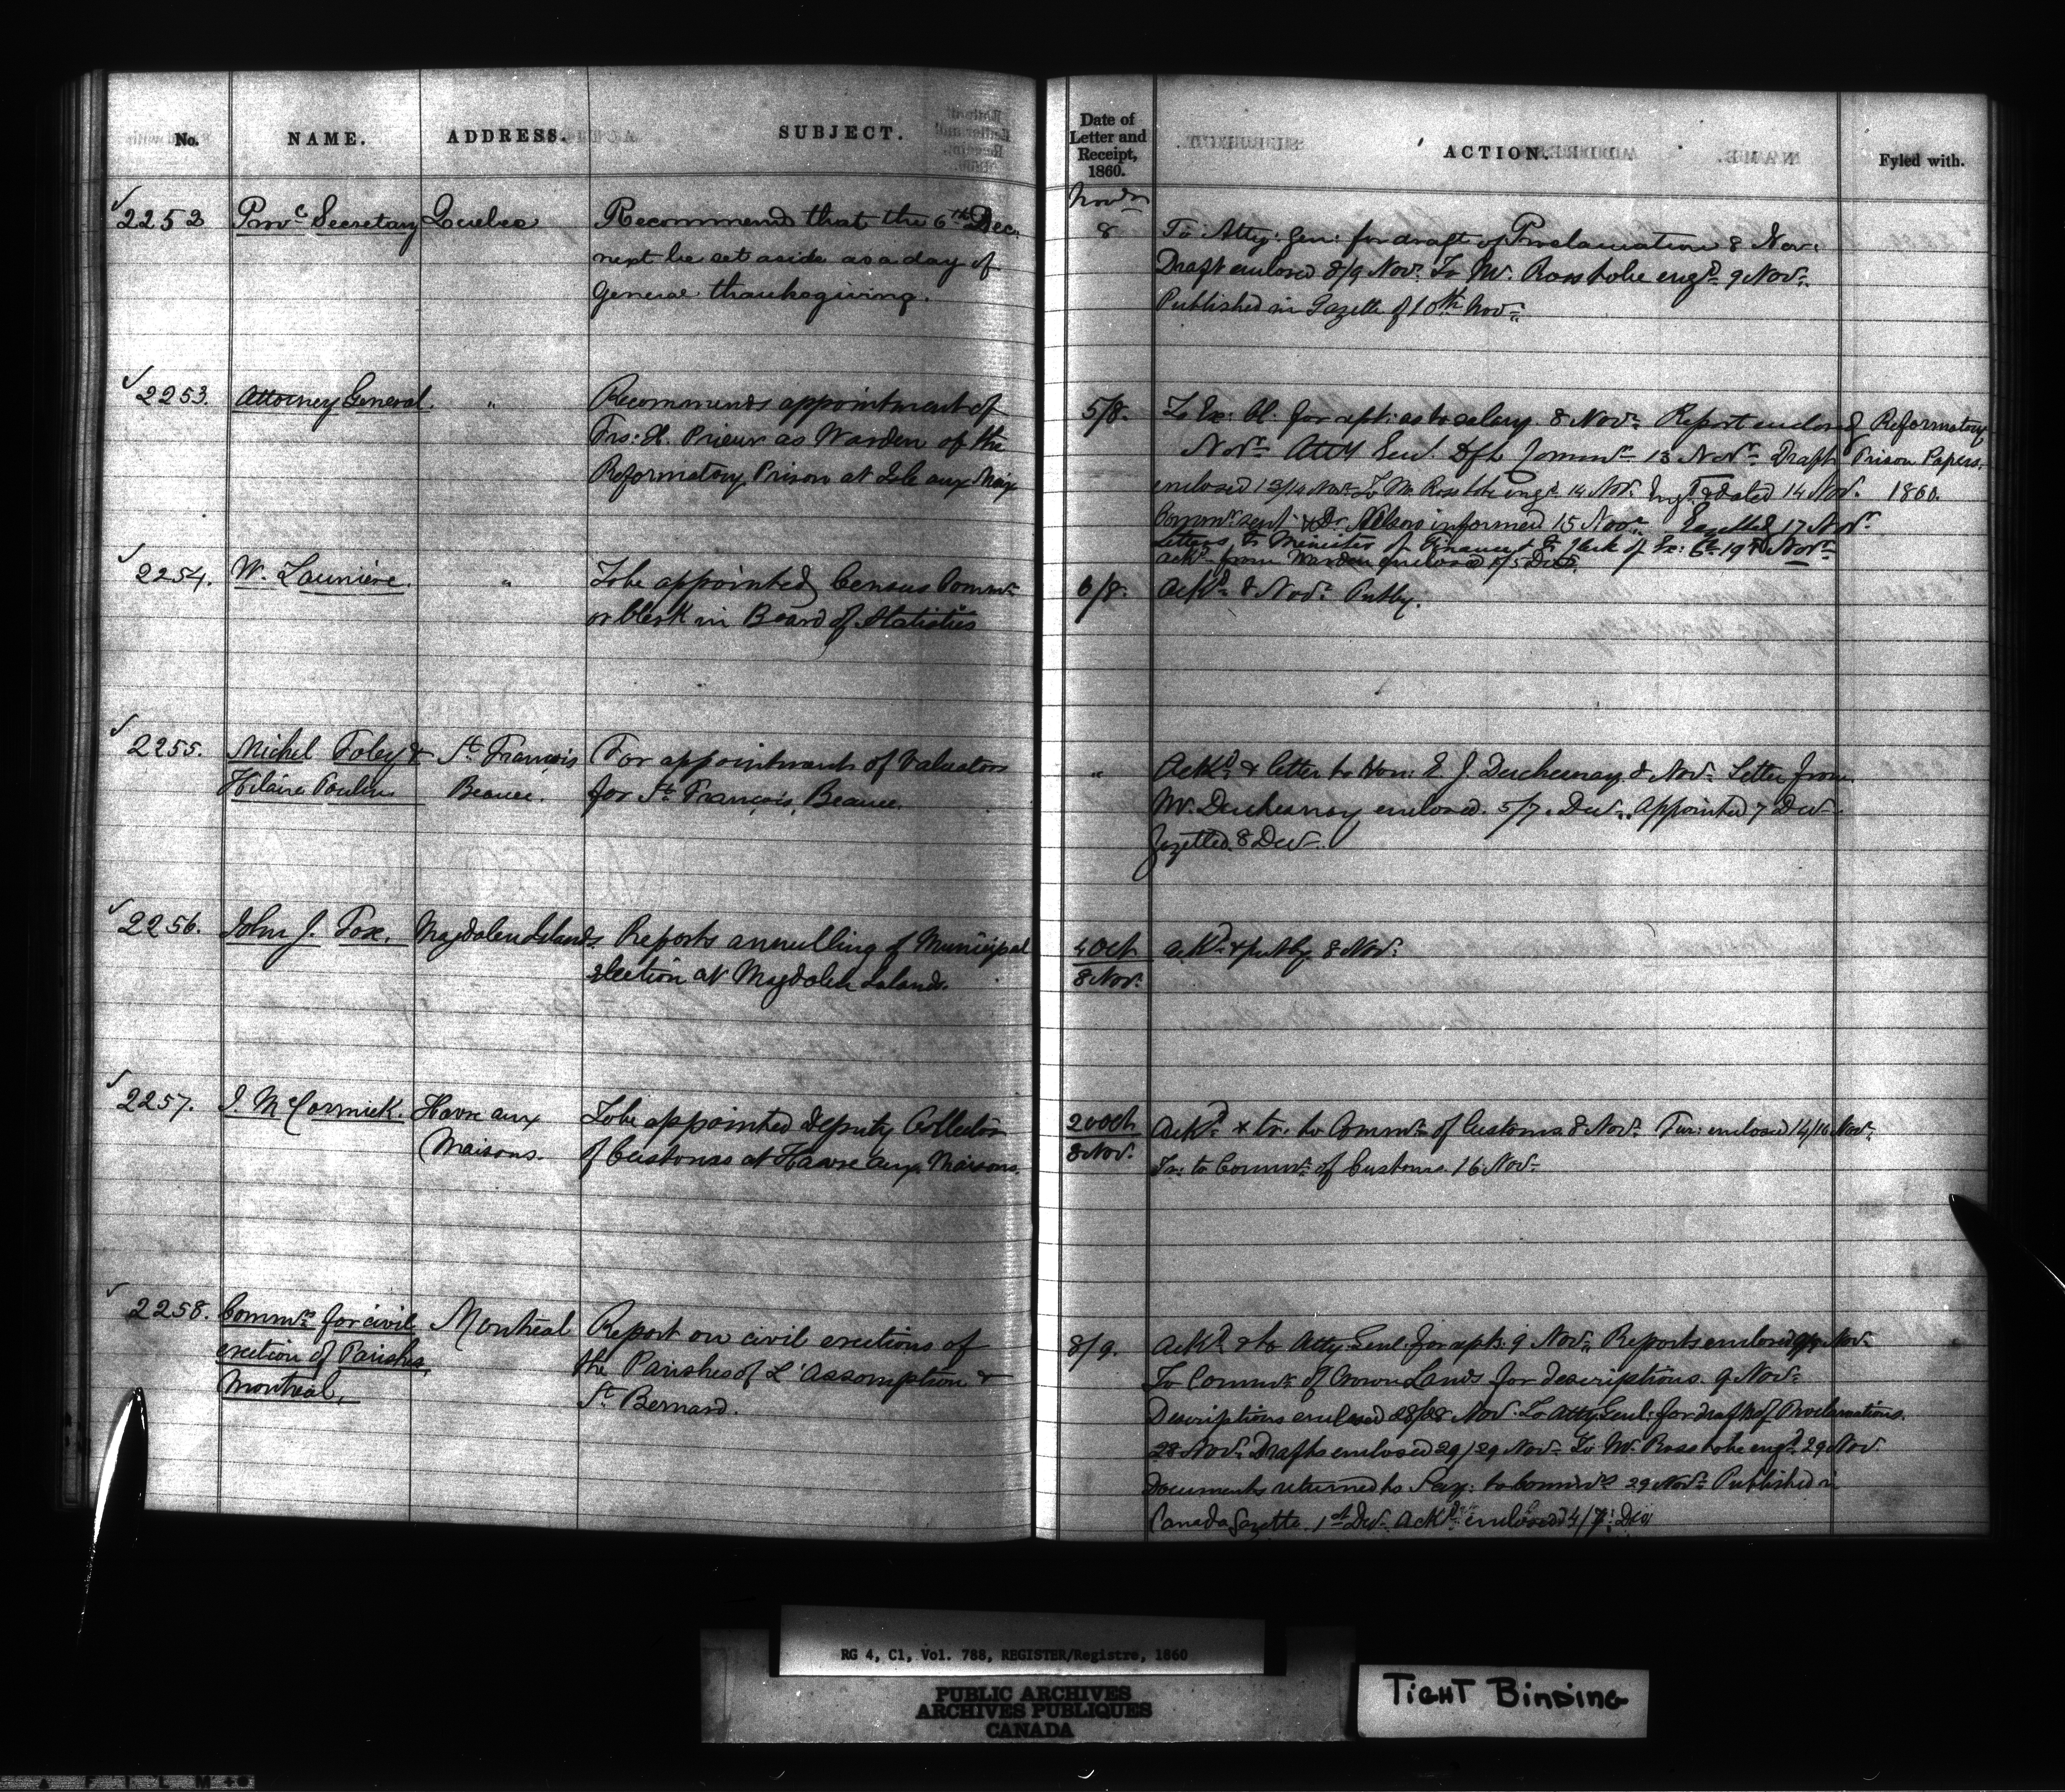 No. NAME. ADDRESS. SUBJECT.
2252 Provc Secretary Quebec Recommend that the 6th Dec.
next be set aside as a day of
General thanksgiving.
2253. Attorney General. " Recommends appointment of
Frs: X. Prieur as Warden of the
Reformatory Prison at Isle aux Noix
2254. W. Launière. " To be appointed Census Commr
or Clerk in Board of Statistics
2255. Michel Foley & St François For appointment of Valuators
Hilaire Poulin Beauce. for St François, Beauce.
2256. John J. Fox. Magdalen Islands Reports annulling of Municipal
election at Magdalen Islands.
2257. J. McCormick. Havre aux To be appointed Deputy Collector
Maisons. of Customs at Havre aux Maisons.
2258. Commrs for civil Montreal Report on civil erections of
erection of Parishes, the Parishes of L'Assomption &
Montreal, St Bernard.
Date of
Letter and
Receipt,
1860.
ACTION. Fyled with.
Novr
8 To Atty: Gen: for draft of Proclamation 8 Nov:
Draft enclosed 8/9 Nov. To Mr. Ross to be engd 9 Nov.
Published in Gazette of 10th Nov
5/8. To Ex: Cl. for rept: as to salary. 8 Novr Report enclosed Reformatory
Novr Atty Genl. Dft Commn 13 Novr Draft Prison Papers,
enclosed 13/14 Novr To Mr Ross to be engd 14 Nov. Engd & dated 14 Nov. 1860.
Commn sent & Dr. Nelson informed 15 Novr Gazetted 17 Novr
Letters to Minister of Finance & to Clerk of Ex: Cl. 19th Novr
ackt from Warden enclosed 1/5 Decr
6/8. Ackd 8 Novr Putby.
" Ackd & letter to Hon: E. J. Duchesnay 8 Novr Letter from
Mr. Duchesnay enclosed. 5/7. Decr. Appointed 7 Decr
Gazetted. 8 Decr.
4 Oct ackd & putby 8 Nov.
8 Nov.
20 Oct Ackd & tr. to Commr of Customs 8 Novr Fur: enclosed 14/16 Nov.
8 Nov. Tr: to Commr of Customs. 16 Nov
8/9. Ackd & to Atty. Genl: for rept: 9 Nov. Reports enclosed Nov.
To Commr of Crown Lands for descriptions. 9 Nov.
Descriptions enclosed 28/28 Nov. To Atty Genl: for draft of Proclamations.
28 Nov. Drafts enclosed 29/29 Nov. To Mr. Ross to be engd 29 Nov.
Documents returned to Secy: to Commrs 29 Nov. Published in
Canada Gazette. 1st Decr. Ackt enclosed 4/7 Dec
RG 4, C1, Vol. 788, REGISTER/Registre, 1860
PUBLIC ARCHIVES
ARCHIVES PUBLIQUES
CANADA
TIGHT BINDING